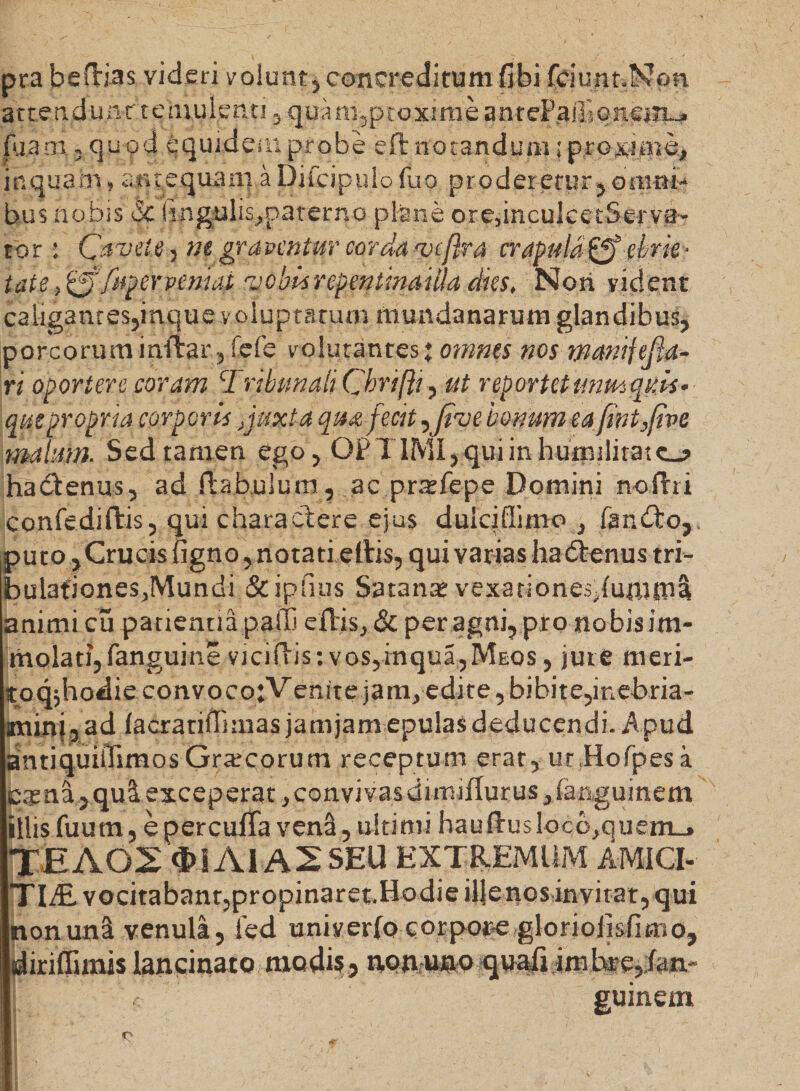 pra beſtias videri volunt, concreditum ſibi ſciunt. Non
attendunt temulenti, quàm, proximè antePaſſionem
ſuam, quod equidem probè eſt notandum; proximè,
inquam, antequam à Diſcipulo ſuo proderetur, omni-
bus nobis & ſingulis, paterno planè ore, inculcetServa-
tor: Cavete, ne graventur corda veſtra crapulâ & ebrie-
tate, & ſuperveniat vobis repentina illa dies. Non vident
caligantes, inque voluptatum mundanarum glandibus,
porcorum inſtar, ſeſe volutantes: omnes nos manifeſta-
ri oportere coram Tribunali Chriſti, ut reportet unusquis-
que propria corporis, juxta quæ fecit, ſive bonum ea ſint, ſive
malum. Sed tamen ego, OPTIMI, qui in humilitate
hactenus, ad ſtabulum, ac præſepe Domini noſtri
conſediſtis, qui charactere ejus dulciſſimo, ſancto,
puto, Crucis ſigno, notati eſtis, qui varias hactenus tri-
bulationes, Mundi & ipſius Satanæ vexationes, ſummâ
animi cū patientiâ paſſi eſtis, & per agni, pro nobis im-
molati, ſanguinē viciſtis: vos, inquā, MEOS, jure meri-
toq; hodie convoco; Venite jam, edite, bibite, inebria-
mini, ad ſacratiſſimas jamjam epulas deducendi. Apud
antiquiſſimos Græcorum receptum erat, ut Hoſpes à
cænâ, quâ exceperat, convivas dimiſſurus, ſanguinem
illis ſuum, è percuſſa venâ, ultimi hauſtus locô, quem
ΤΕΛΟΣ ΦΙΛΙΑΣ SEU EXTREMUM AMICI-
TIÆ vocitabant, propinaret. Hodie ille nos invitat, qui
non unâ venulâ, ſed univerſo corpore glorioſisſimo,
diriſſimis lancinato modis, non uno quaſi imbre, ſan-
guinem